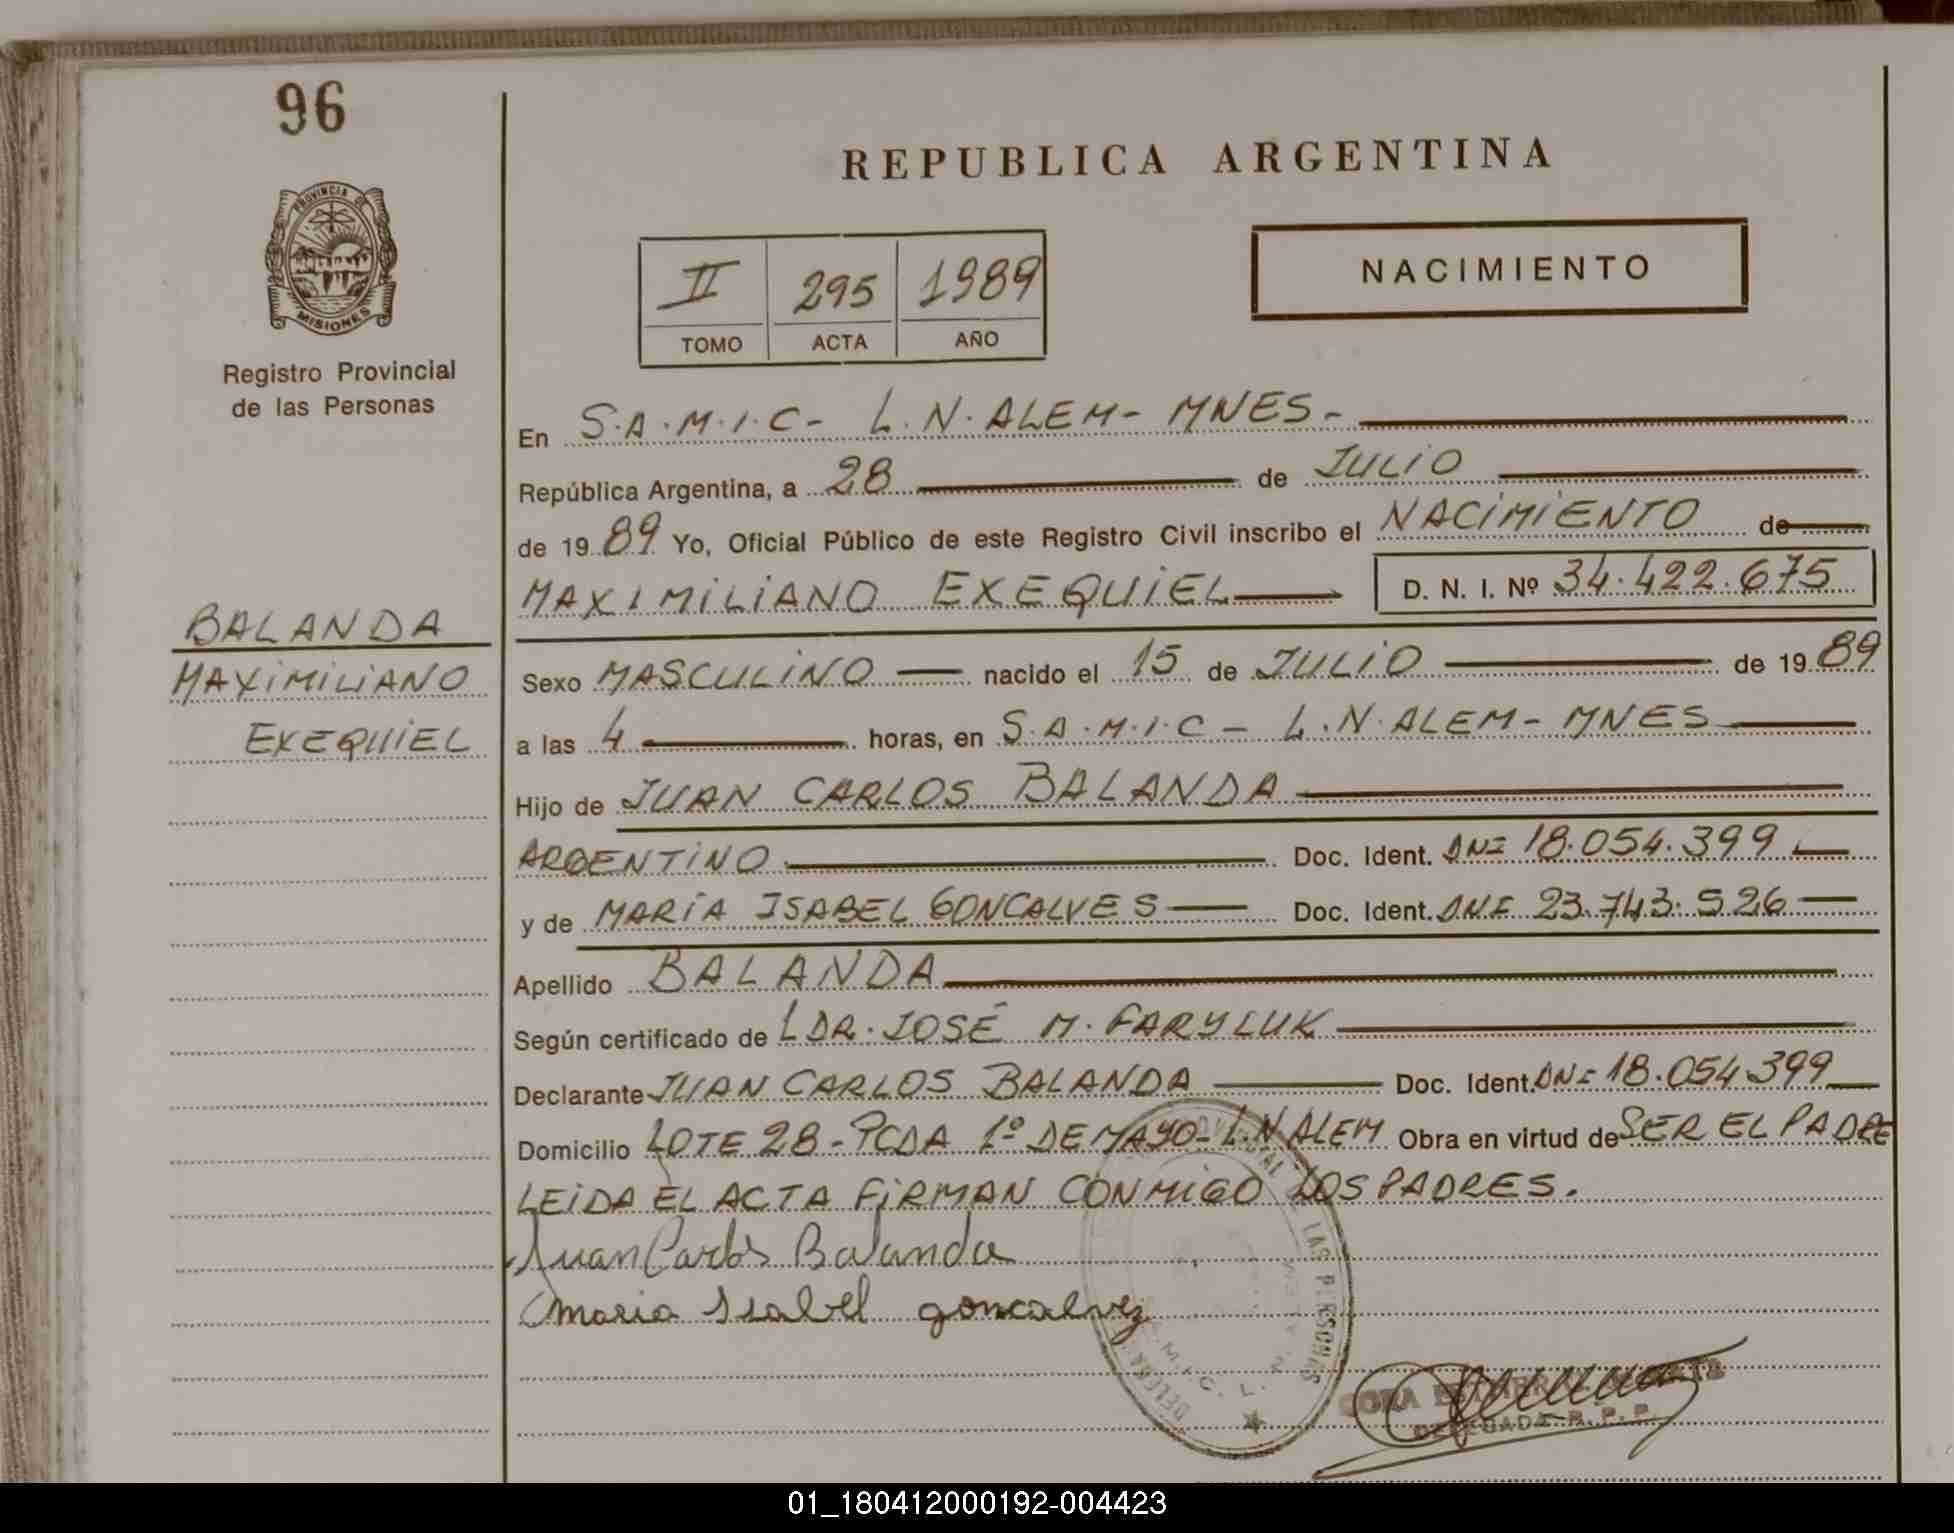 96
REPUBLICA ARGENTINA
PROVINCIA DE
MISIONES
Registro Provincial
de las Personas
II 295 1989
TOMO ACTA AÑO
NACIMIENTO
En S.A.M.I.C- L.N.ALEM- MNES-
República Argentina, a 28 de JULIO
de 1989 Yo, Oficial Público de este Registro Civil inscribo el NACIMIENTO de
MAXIMILIANO EXEQUIEL D. N. I. Nº 34.422.675
BALANDA
MAXIMILIANO
EXEQUIEL
Sexo MASCULINO nacido el 15 de JULIO de 1989
a las 4 horas, en S.A.M.I.C- L.N.ALEM- MNES
Hijo de JUAN CARLOS BALANDA
ARGENTINO Doc. Ident. DNI 18.054.399
y de MARIA ISABEL GONCALVES Doc. Ident. DNI 23.743.526
Apellido BALANDA
Según certificado de DR. JOSÉ M. FARYLUK
Declarante JUAN CARLOS BALANDA Doc. Ident. DNI 18.054.399
Domicilio LOTE 28- PCDA 1º DE MAYO- L.N ALEM Obra en virtud de SER EL PADRE
LEIDA EL ACTA FIRMAN CONMIGO LOS PADRES.
Juan Carlos Balanda
Maria Isabel goncalvez
LAS PERSONAS
DELEGADA R. P. P.
01_180412000192-004423